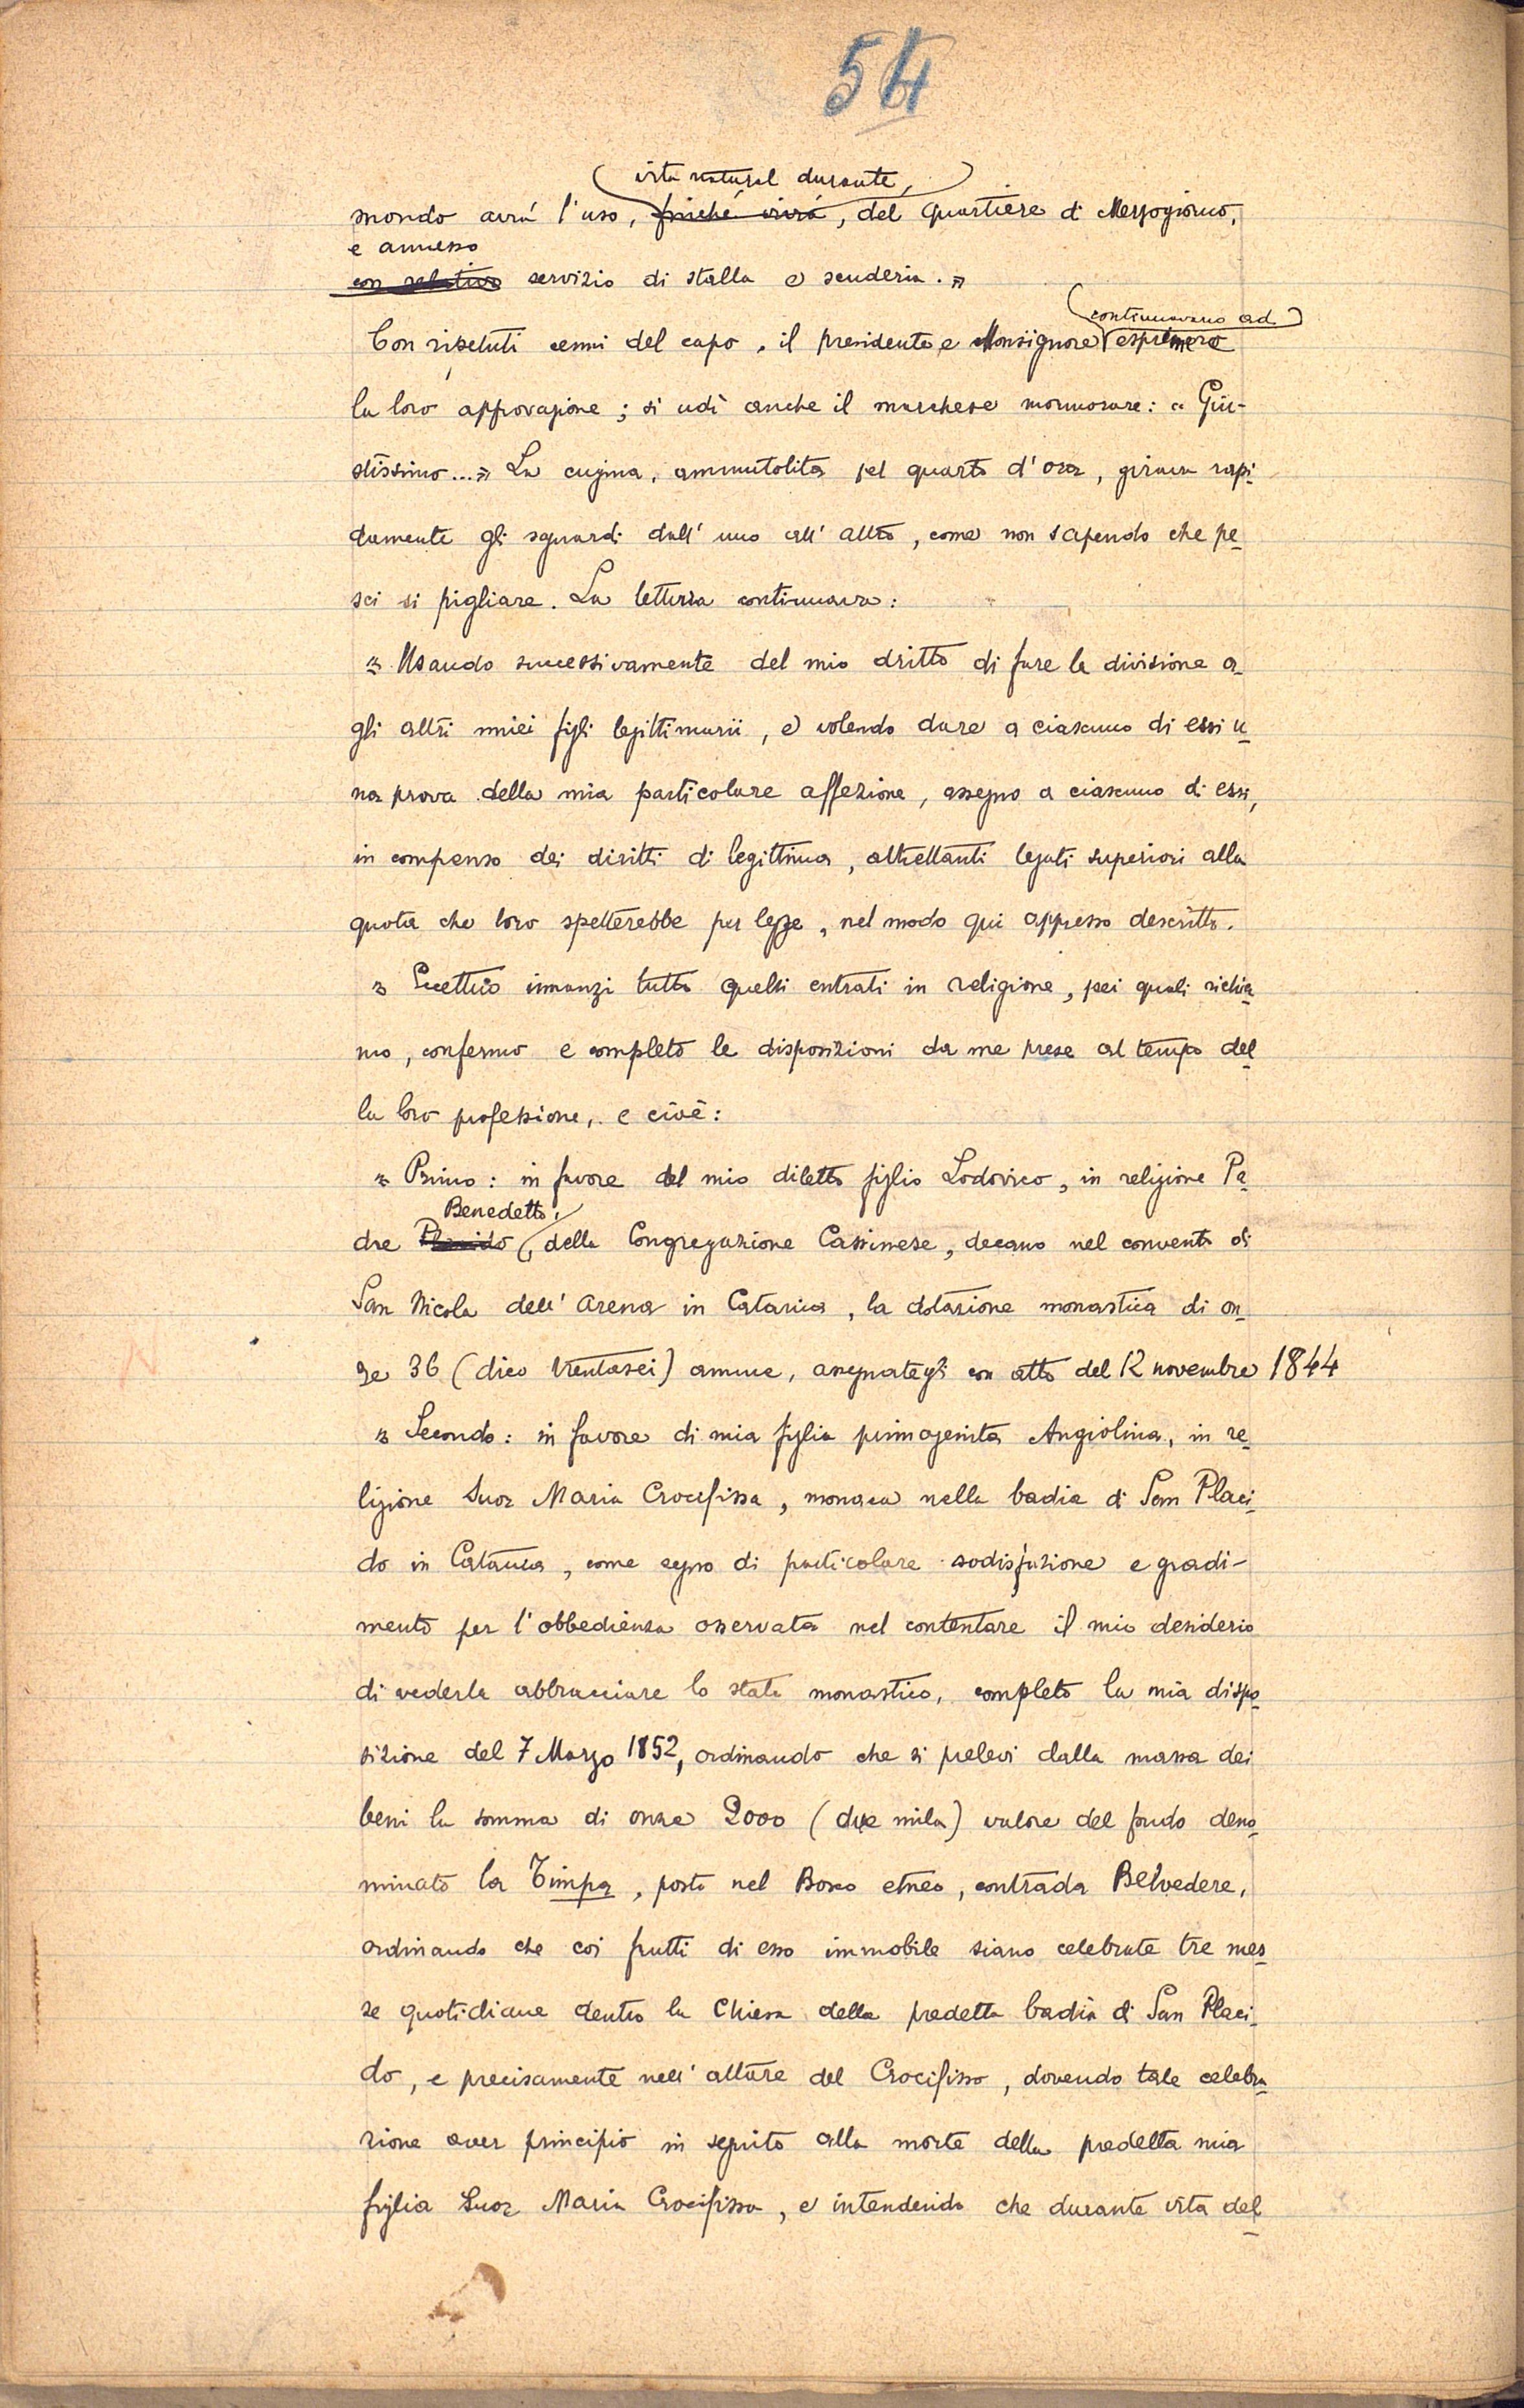 54
vita natural durante,
mondo avrà l'uso, finché vivrà, del Quartiere di Mezzogiorno,
e annesso
con relativo servizio di stalla e scuderia. »
continuavano ad
Con ripetuti cenni del capo, il presidente e Monsignore esprimere
la loro approvazione; si udì anche il marchese mormorare: « Giu-
stissimo...» La cugina, ammutolita pel quarto d'ora, girava rapi-
damente gli sguardi dall'uno all'altro, come non sapendo che pe-
sci si pigliare. La lettura continuava:
» Usando successivamente del mio dritto di fare la divisione a-
gli altri miei figli legittimarii, e volendo dare a ciascuno di essi u-
na prova della mia particolare affezione, assegno a ciascuno di essi,
in compenso dei diritti di legittima, altrettanti legati superiori alla
quota che loro spetterebbe per legge, nel modo qui appresso descritto.
» Eccettuo innanzi tutto quelli entrati in religione, pei quali richia-
mo, confermo e completo le disposizioni da me prese al tempo del-
la loro professione, e cioè:
» Primo: in favore del mio diletto figlio Lodovico, in religione Pa-
Benedetto,
dre Placido, della Congregazione Cassinese, decano nel convento di
San Nicola dell'Arena in Catania, la dotazione monastica di on-
ze 36 (dico trentasei) annue, assegnategli con atto del 12 novembre 1844
» Secondo: in favore di mia figlia primogenita Angiolina, in re-
ligione Suor Maria Crocifissa, monaca nella badia di San Placi-
do in Catania, come segno di particolare sodisfazione e gradi-
mento per l'obbedienza osservata nel contentare il mio desiderio
di vederla abbracciare lo stato monastico, completo la mia dispo-
sizione del 7 Marzo 1852, ordinando che si prelevi dalla massa dei
beni la somma di onze 2000 (due mila) valore del fondo deno-
minato la Timpa, posto nel Bosco etneo, contrada Belvedere,
ordinando che coi frutti di esso immobile siano celebrate tre mes-
se quotidiane dentro la Chiesa della predetta badia di San Placi-
do, e precisamente nell'altare del Crocifisso, dovendo tale celebra-
zione aver principio in seguito alla morte della predetta mia
figlia Suor Maria Crocifissa, e intendendo che durante vita del-